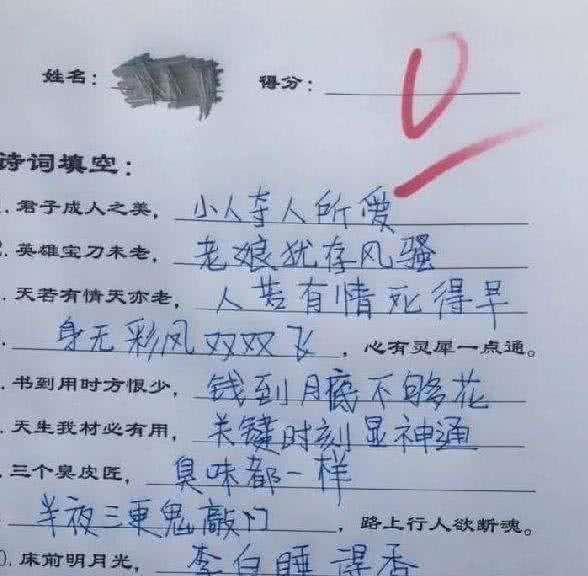 姓名： 得分： 0
诗词填空：
. 君子成人之美， 小人夺人所爱
. 英雄宝刀未老， 老娘犹存风骚
. 天若有情天亦老， 人若有情死得早
. 身无彩风双双飞 ，心有灵犀一点通。
. 书到用时方恨少， 钱到月底不够花
. 天生我材必有用， 关键时刻显神通
. 三个臭皮匠， 臭味都一样
半夜三更鬼敲门 ，路上行人欲断魂。
). 床前明月光， 李白睡得香